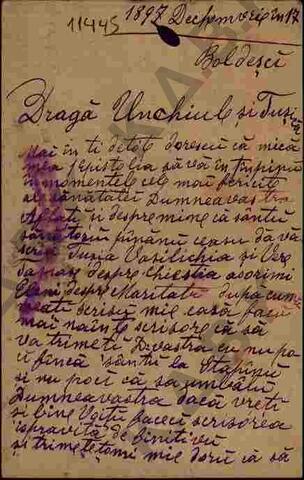 11445
1897 Decemvrie în 17
Boldești
Dragă Unchiule și Tușa
Mai în ti de tote dorescu că mica
mea Epistolia să vă în timpinu
în momentele cele mai fericite
ale sănătăți Dumneavostra
Aflați și despre mine că sântu
sănătosu pînă nu ceasu dă va
scriu Tușa Vasilichia și Vere
despre chiestia adormi
Eleni despre Maritatu după cum
ați scrisu mie casă facu
mai nainte scrisore că să
va trimeti D.vostra cu nu po
ci fincă sântu la Stăpînu
și nu poci ca să umblu
Dumneavostra dacă vreți
și bine Voiți faceci scrisorea
ispravită de binitivu
și trimetetomi mie doru că să